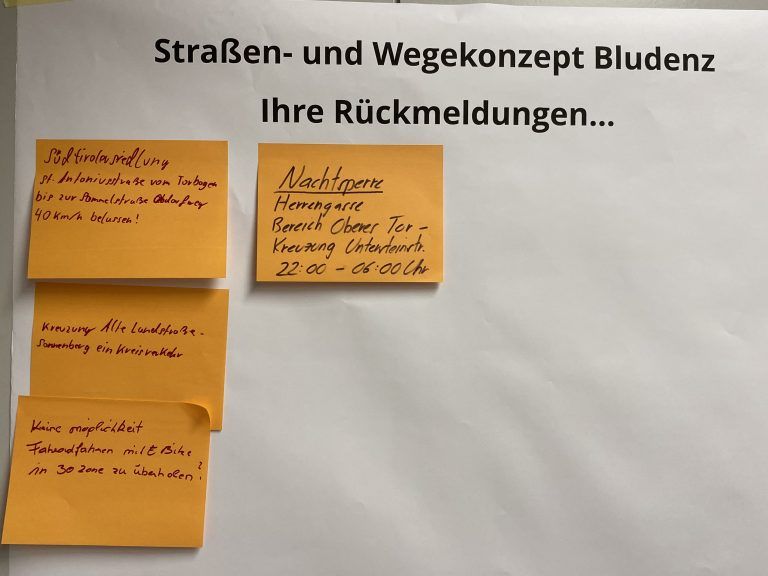 Straßen- und Wegekonzept Bludenz
Ihre Rückmeldungen...
Südtirolersiedlung
St. Antoniusstraße vom Torbogen
bis zur Sammelstraße Obdorfweg
40 km/h belassen!
Kreuzung Alte Landstraße -
Sonnenberg ein Kreisverkehr
Keine möglichkeit
Fahrradfahren mit E Bike
in 30 zone zu überholen?!
Nachtsperre
Herrengasse
Bereich Oberes Tor -
Kreuzung Untersteinstr.
22:00 - 06:00 Uhr